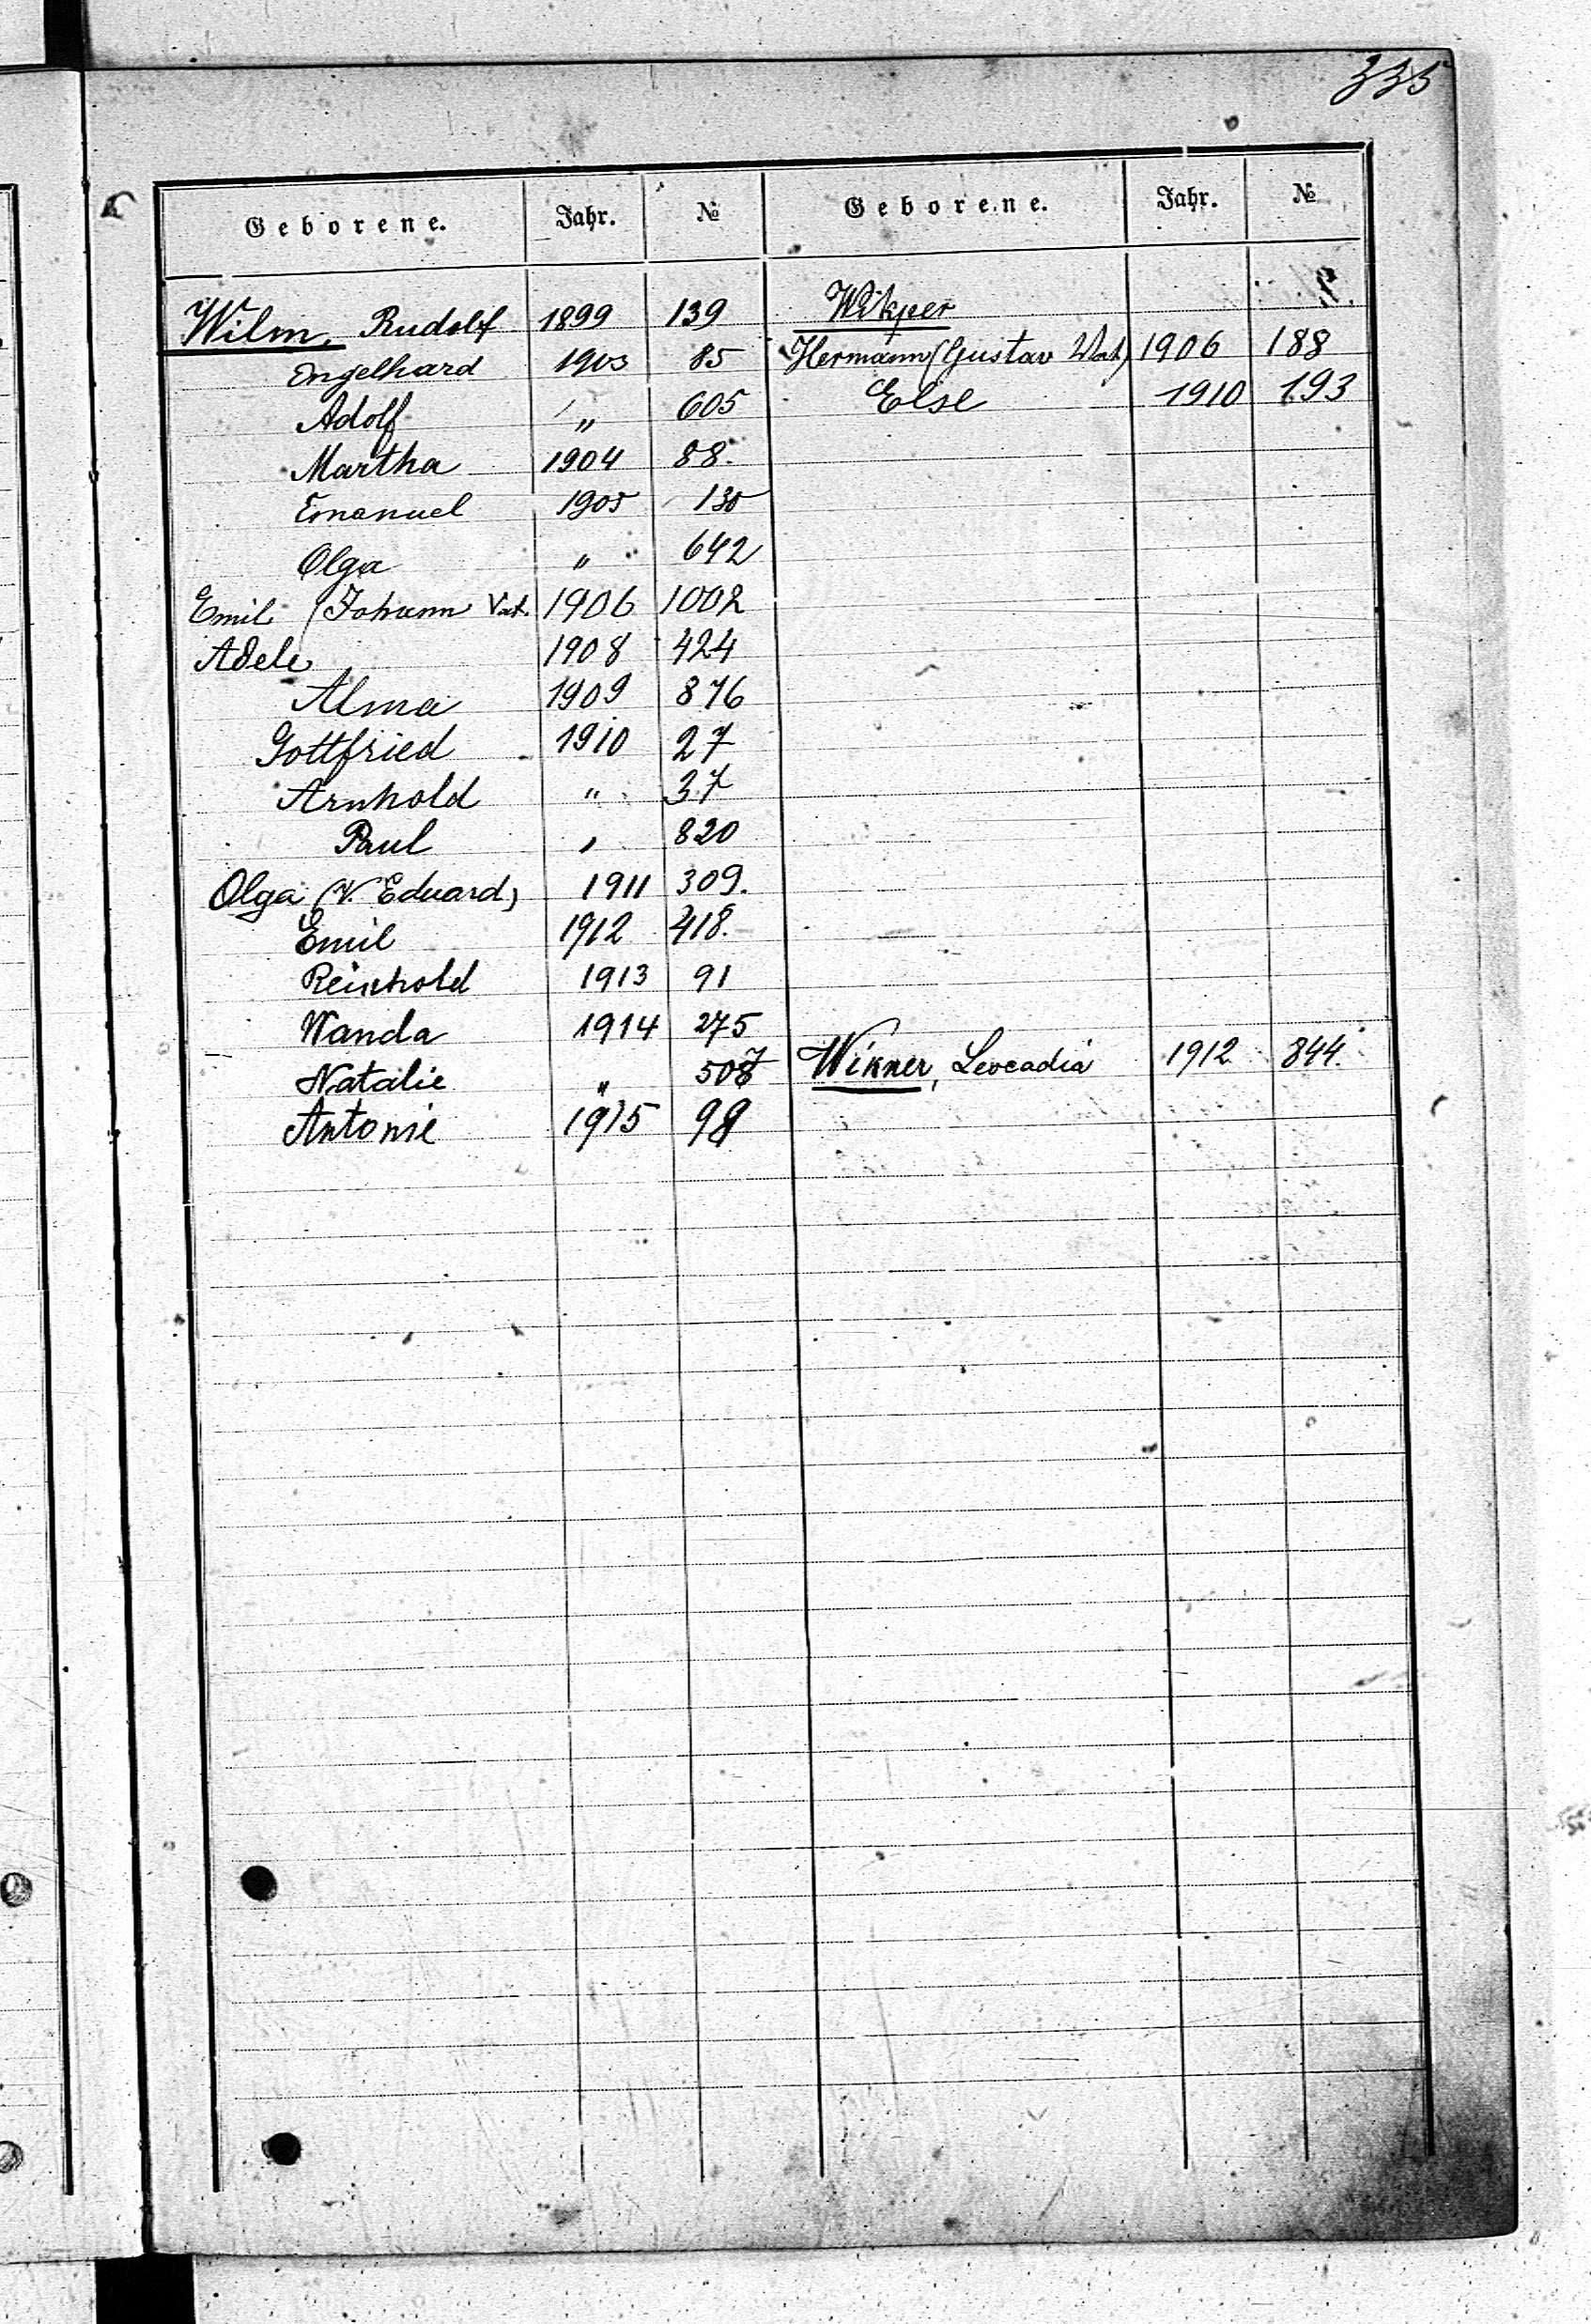 335
Geborene. Jahr. № Geborene. Jahr. №
Wilm, Rudolf 1899 139
Engelhard 1903 85
Adolf " 605
Martha 1904 88.
Emanuel 1905 130
Olga " 642
Emil (Johann Vat. 1906 1002
Adele 1908 424
Alma 1909 876
Gottfried 1910 27
Arnhold " 37
Paul " 820
Olga (V. Eduard) 1911 309.
Emil 1912 418.
Reinhold 1913 91
Wanda 1914 275
Natalie " 507
Antonie 1915 98
Hermann (Gustav Vat.) 1906 188
Else 1910 193
Wikner, Leocadia 1912 844.